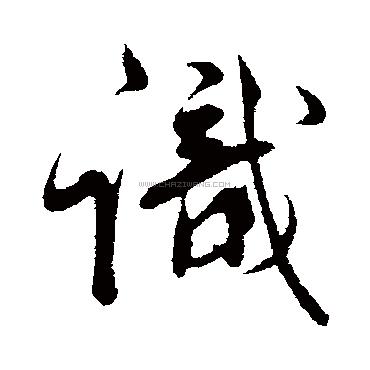 識
WWW.CHAZIWANG.COM